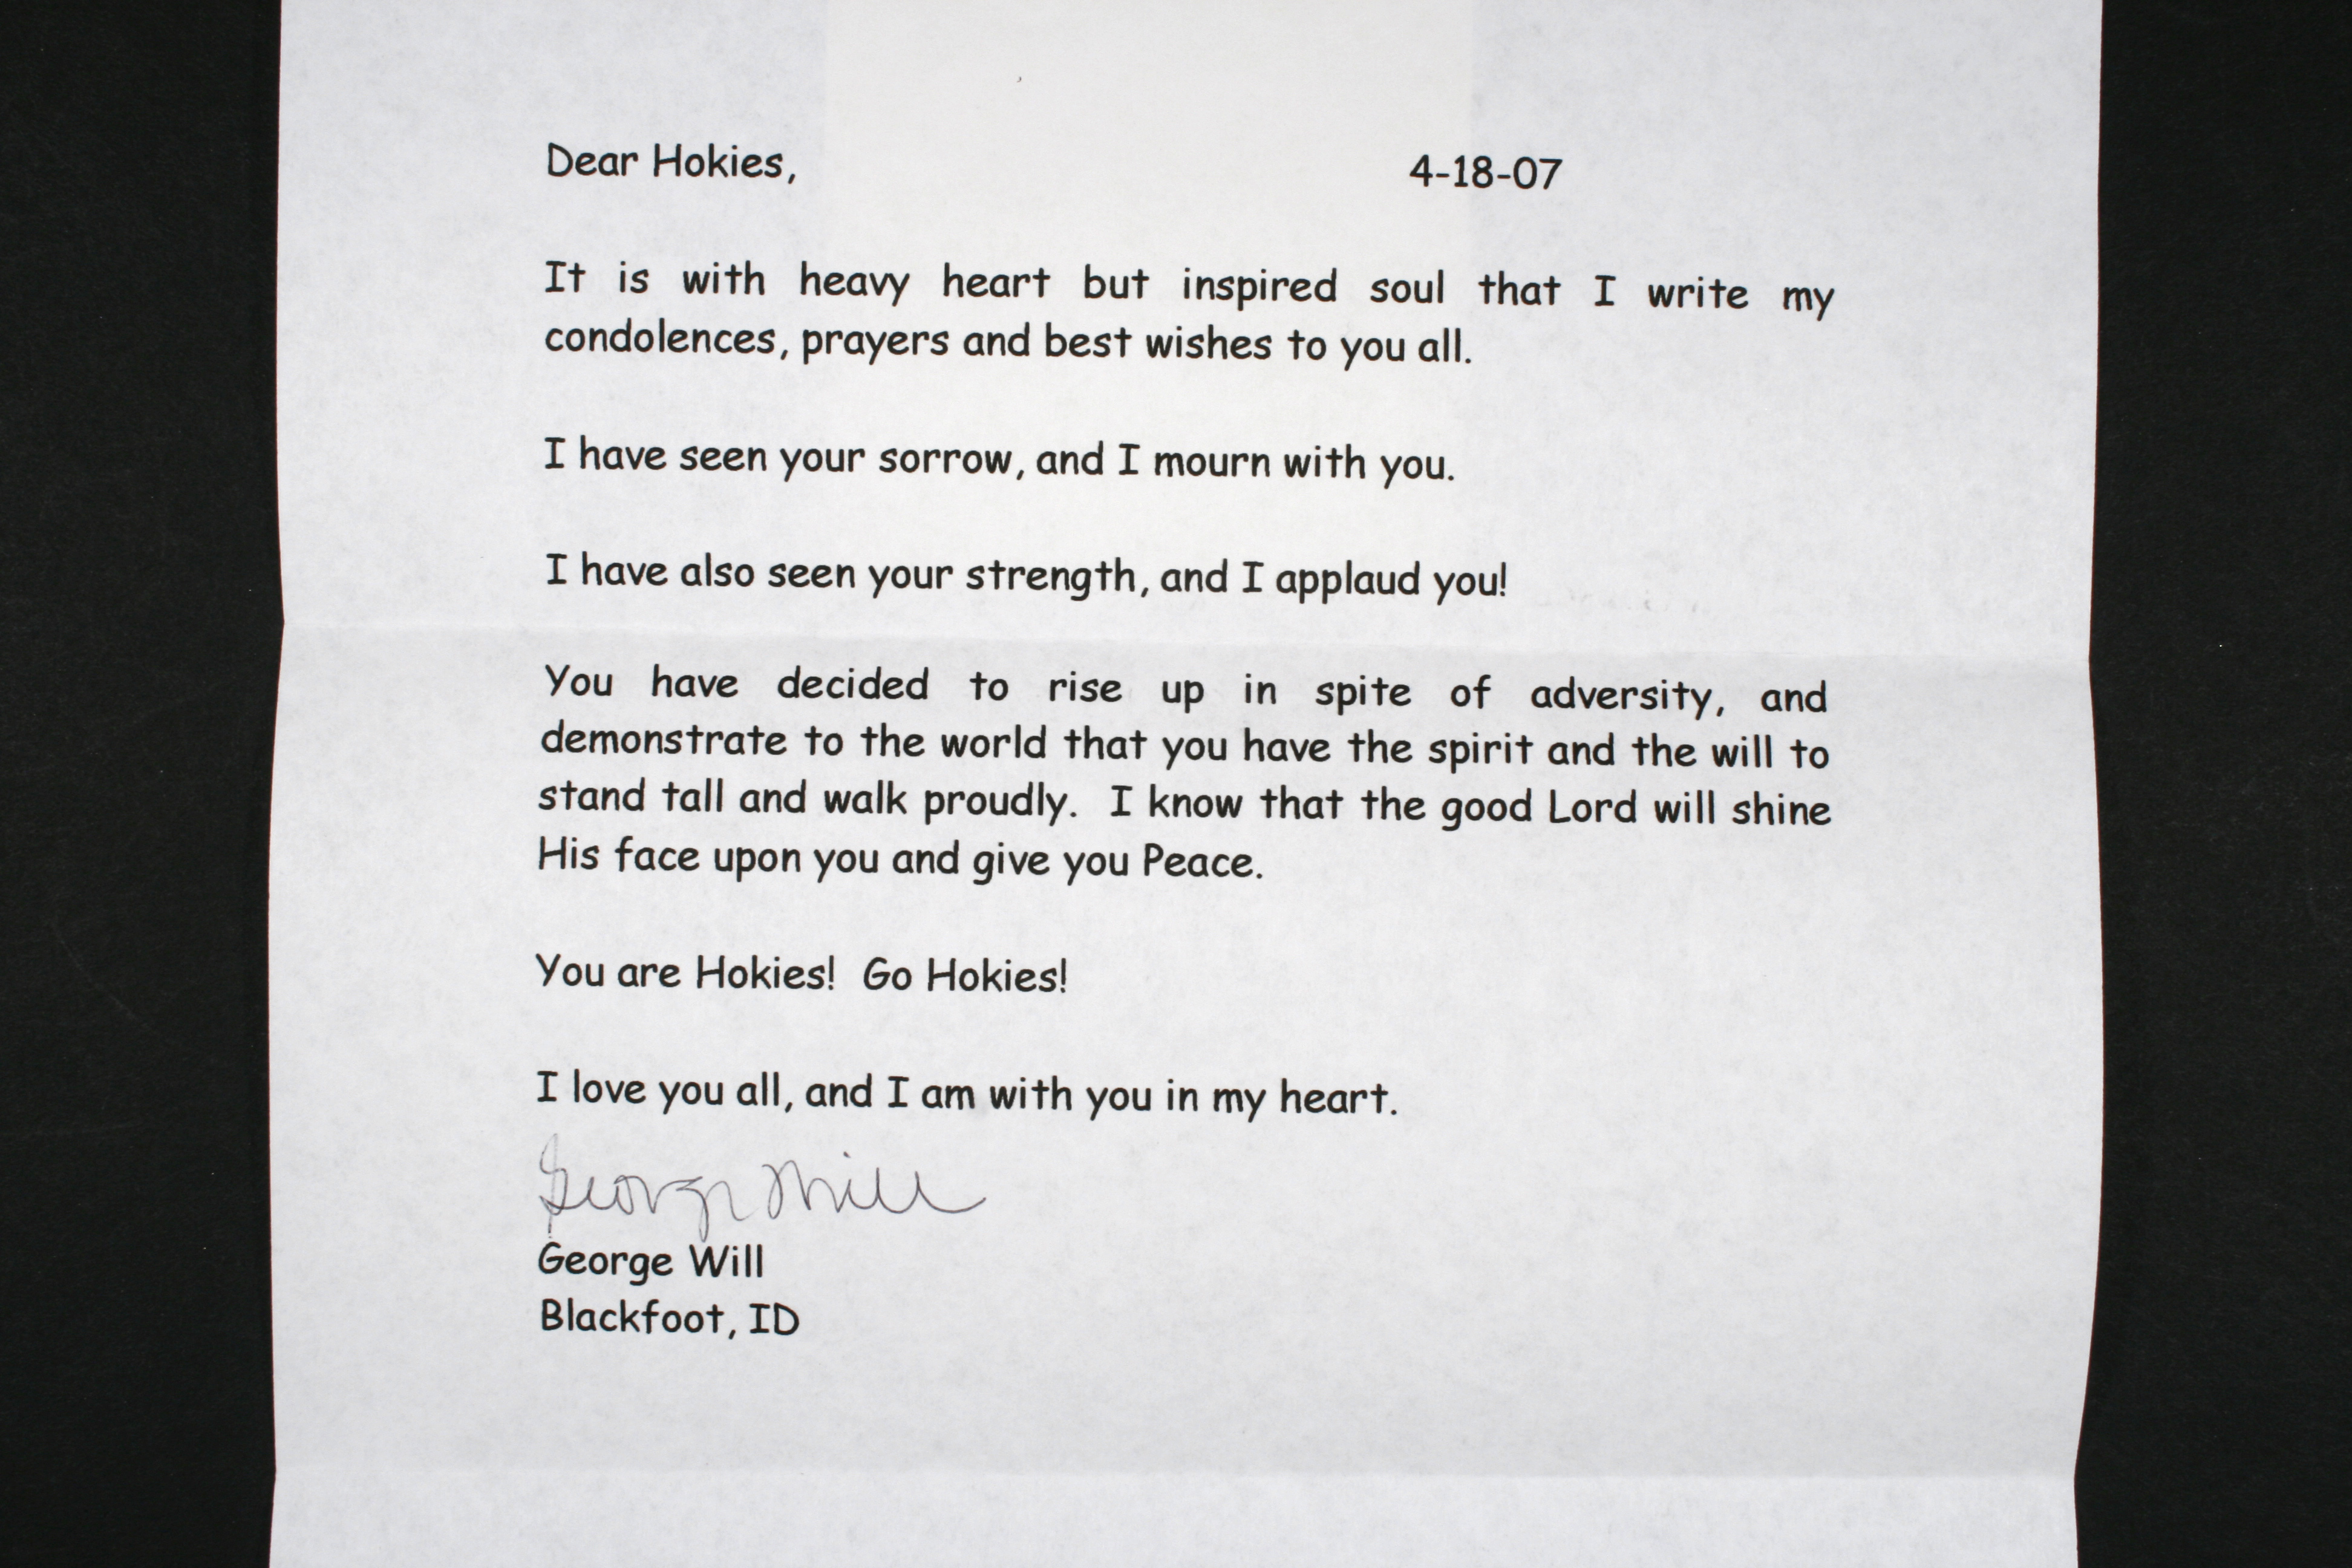 Dear Hokies, 4-18-07
It is with heavy heart but inspired soul that I write my
condolences, prayers and best wishes to you all.
I have seen your sorrow, and I mourn with you.
I have also seen your strength, and I applaud you!
You have decided to rise up in spite of adversity, and
demonstrate to the world that you have the spirit and the will to
stand tall and walk proudly. I know that the good Lord will shine
His face upon you and give you Peace.
You are Hokies! Go Hokies!
I love you all, and I am with you in my heart.
George Will
George Will
Blackfoot, ID